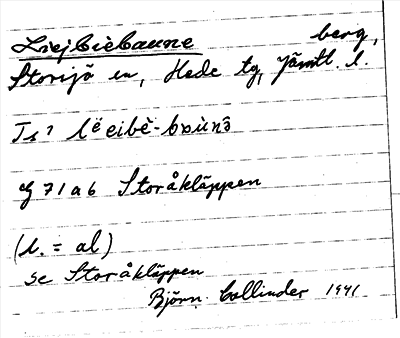 Liejbiebaune berg,
Storsjö sn, Hede tg, Jämtl. l.
Ts? lëeibè-bɒùnɜ̂
Cf 71 a 6 Storåkläppen
(l. = al)
se Storåkläppen
Björn Collinder 1941